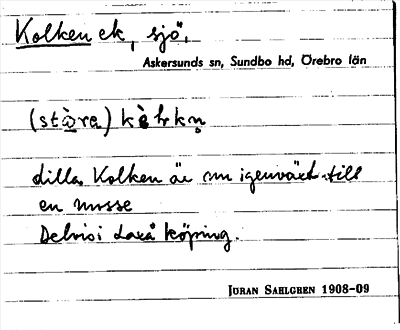 Kolken ek, sjö,
Askersunds sn, Sundbo hd, Örebro län
(stàra) kòlkn̥
Lilla Kolken är nu igenväxt till
en mosse
Delvis i Laxå köping.
JÖRAN SAHLGREN 1908-09